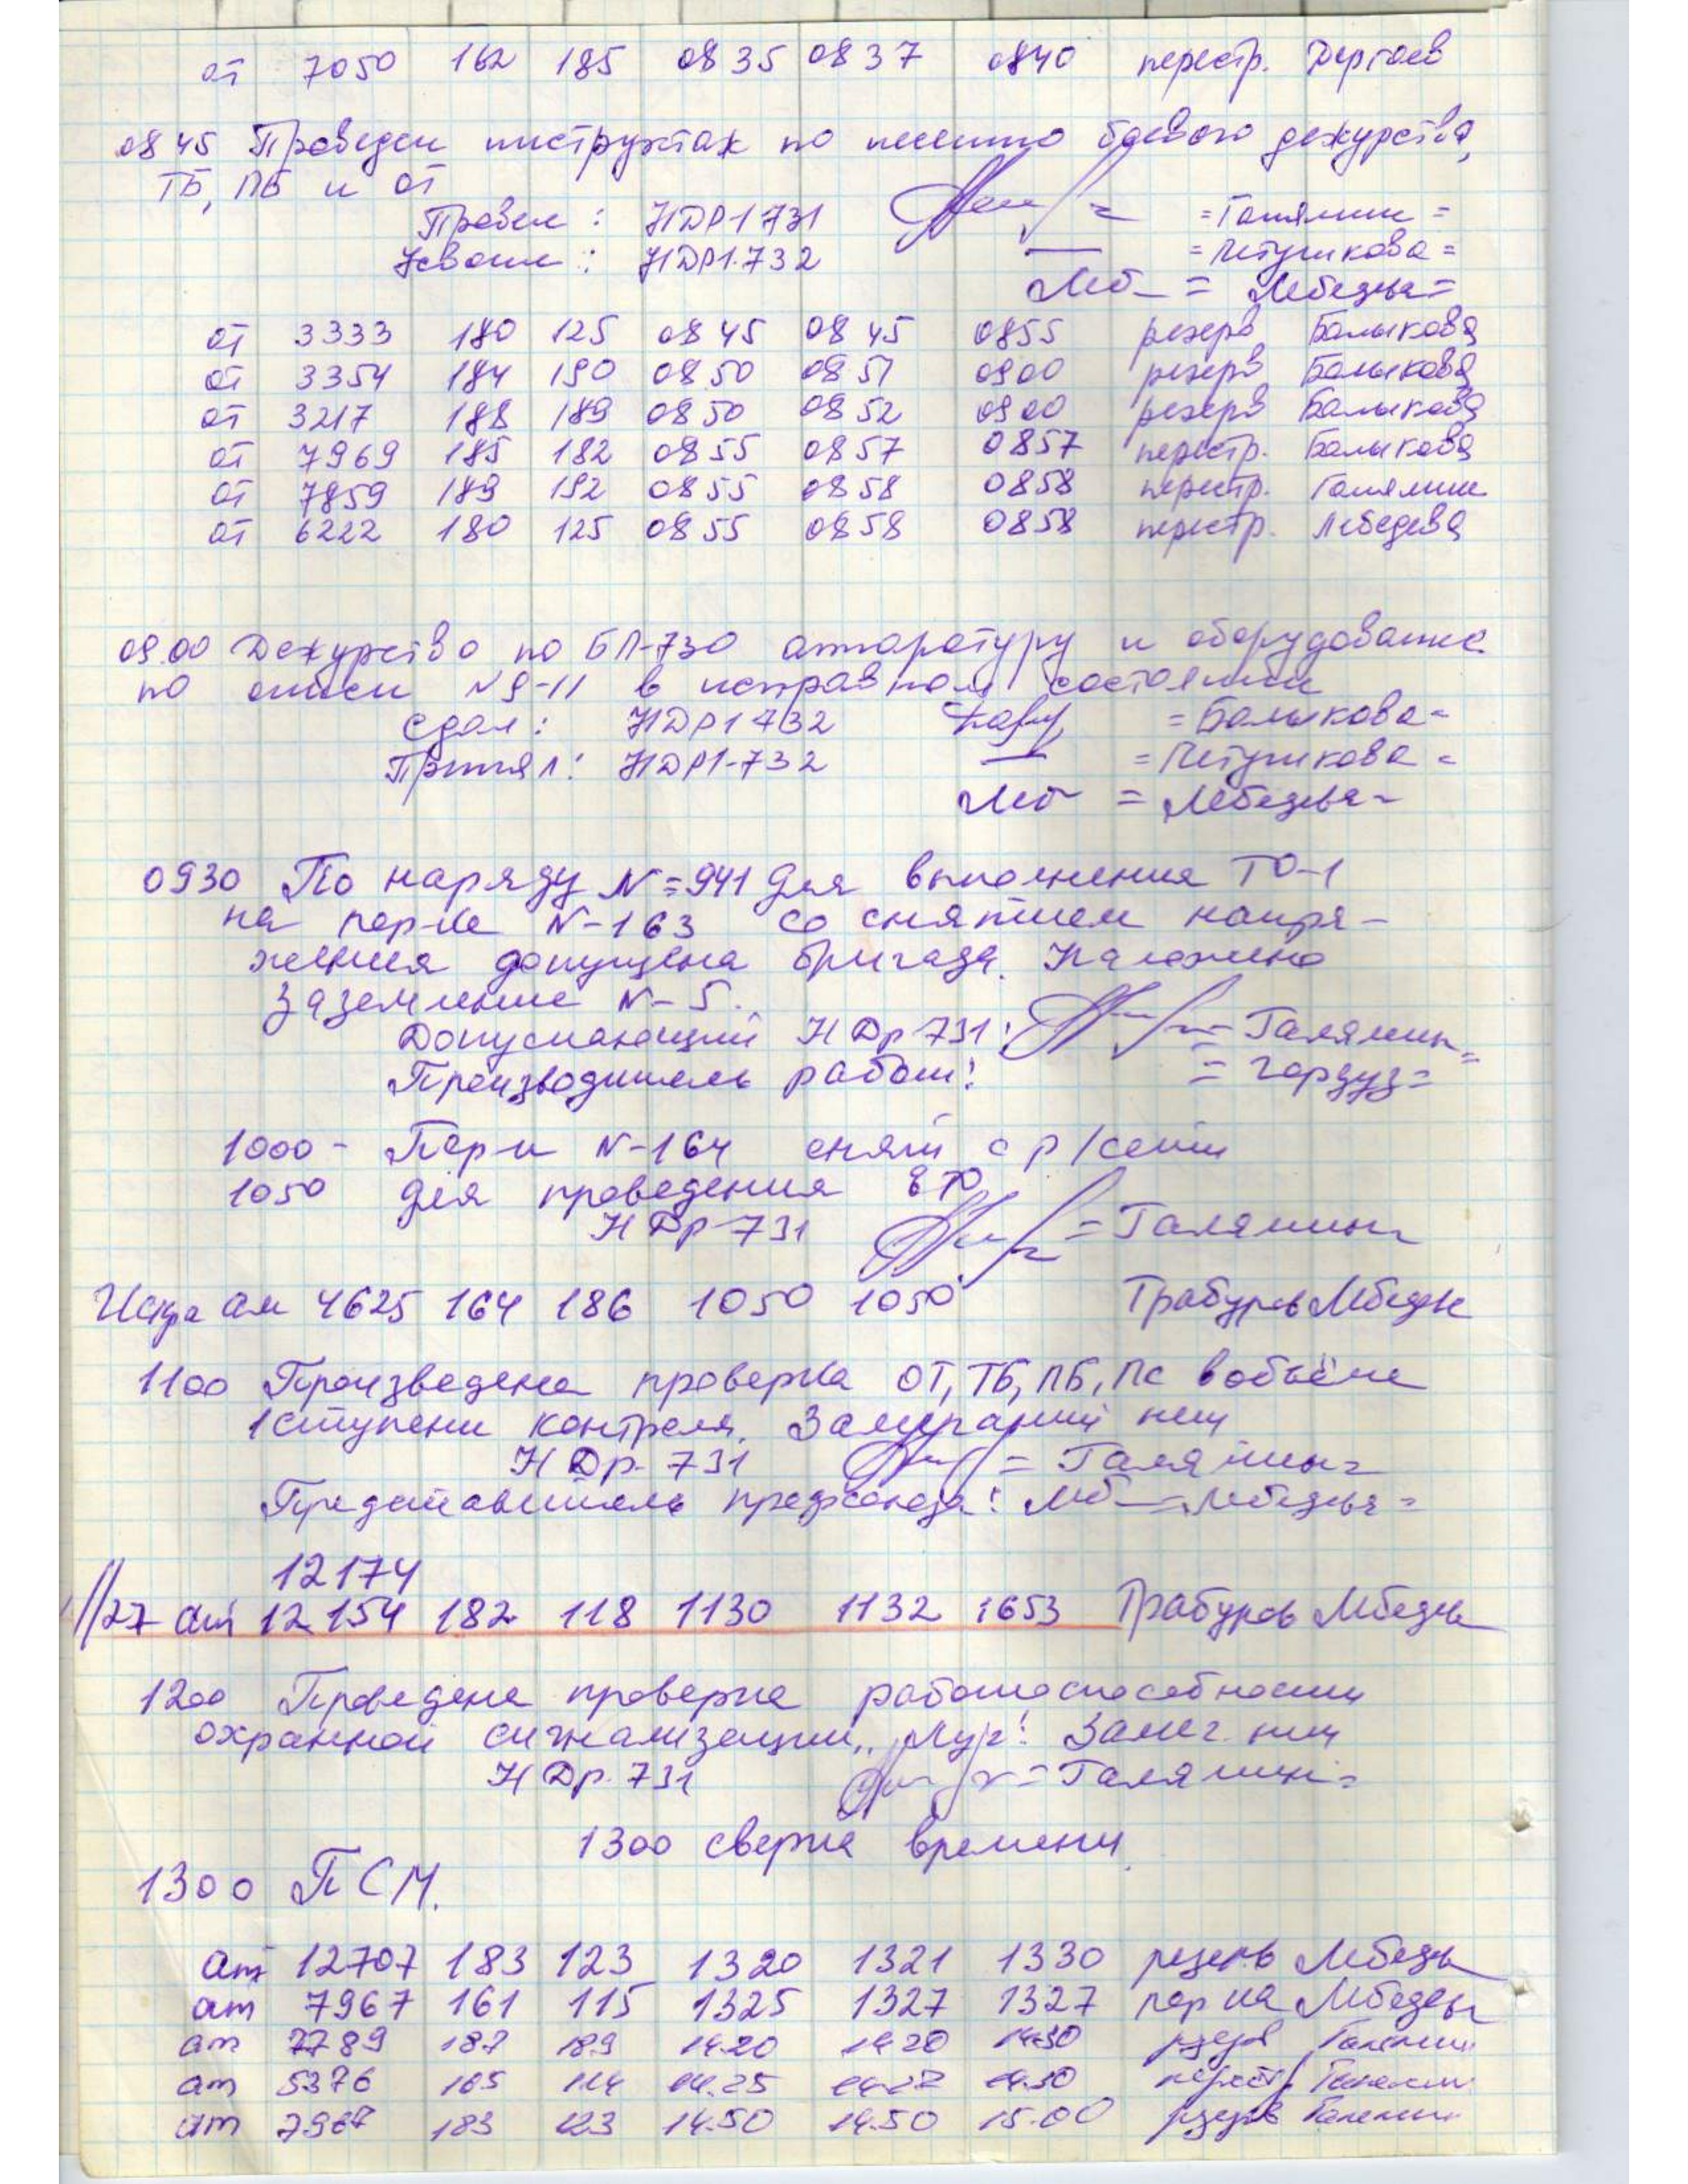 от 7050 162 185 0835 0837 0840 перестр. Дергоев
0845 Проведен инструктаж по несению боевого дежурства,
ТБ, ПБ и ОТ
Провел: НДР1 731 =Галямин=
Усвоили: НДР1-732 =Петушкова=
=Лебедева=
от 3333 180 125 0845 0845 0855 резерв Балыкова
от 3354 184 190 0850 0851 0900 резерв Балыкова
от 3217 188 189 0850 0852 0900 резерв Балыкова
от 7969 185 182 0855 0857 0857 перестр. Балыкова
от 7859 189 192 0855 0858 0858 перестр. Галямин
от 6222 180 125 0855 0858 0858 перестр. Лебедева
09.00 Дежурство по БП-730 аппаратуру и оборудование
по описи №9-11 в исправном состоянии
Сдал: НДР1 732 =Балыкова=
Принял: НДР1-732 =Петушкова=
=Лебедева=
0930 По наряду №=941 для выполнения ТО-1
на пер-ке №-163 со снятием напря-
жения допущена бригада. Наложено
заземление №-5.
Допускающий НДр 731: =Галямин=
Производитель работ: =Гордуз=
1000- Пер-к №-164 снят с р/сети
1050 для проведения ЕТО
НДр-731 =Галямин=
Искра ат 4625 164 186 1050 1050 Трабуров Лебедев
1100 Произведена проверка ОТ, ТБ, ПБ, ПС в объёме
1 ступени контроля. Замечаний нет
НДр. 731 =Галямин=
Представитель профсоюза: =Лебедева=
12174
//27 ат 12154 182 118 1130 1132 1653 Трабуров Лебедев
1200 Проведена проверка работоспособности
охранной сигнализации „Луч" Замеч. нет
НДр. 731 =Галямин=
1300 сверка времени.
1300 ПСМ.
ат 12707 183 123 1320 1321 1330 резерв Лебедев
ат 7967 161 115 1325 1327 1327 пер на Лебедев
ат 7789 187 189 14.20 14 20 14.30 резерв Галямин
ат 5376 165 114 14.25 14.27 14.30 перестр Галямин
ат 7967 183 123 14.50 14.50 15.00 резерв Галямин